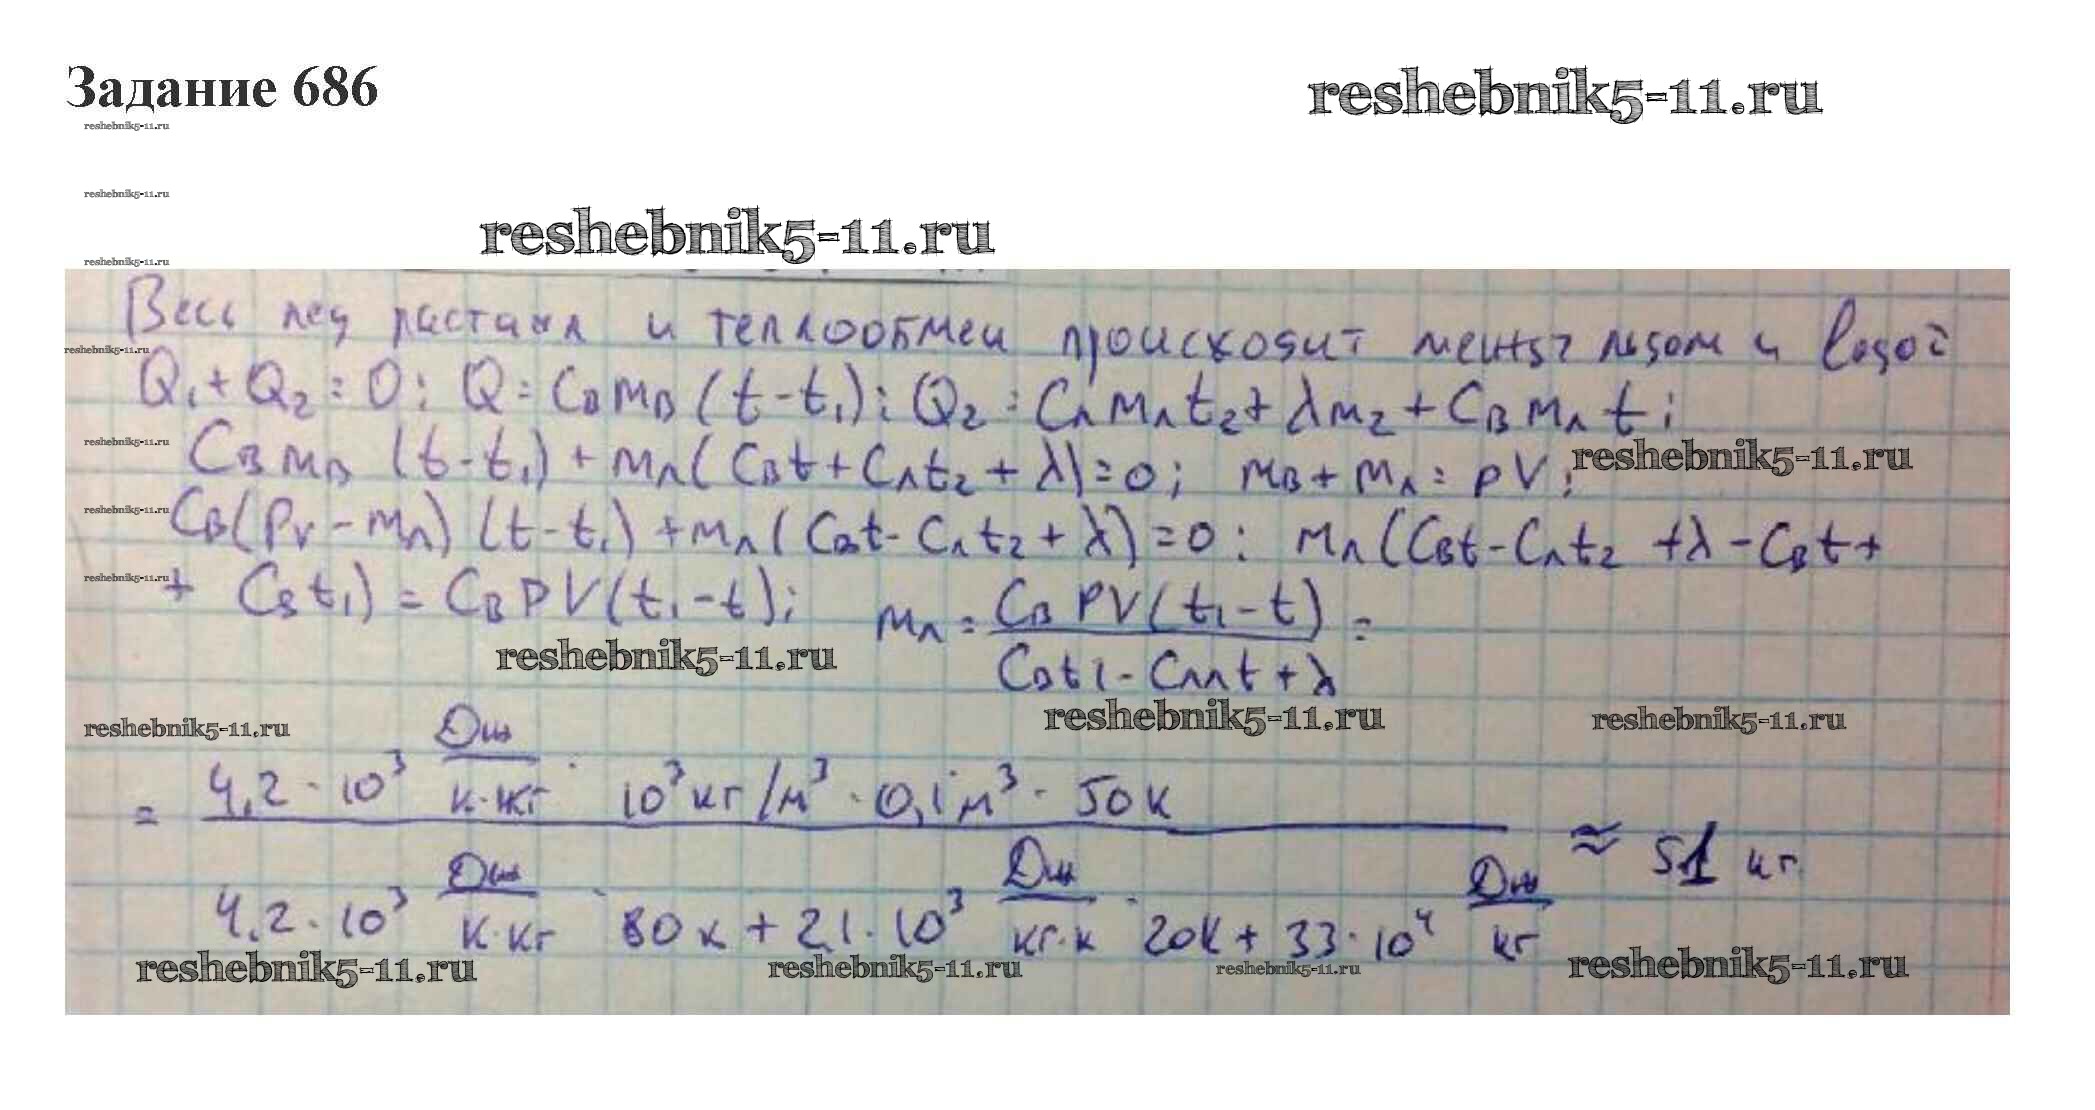 Задание 686
reshebnik5-11.ru
reshebnik5-11.ru
reshebnik5-11.ru
reshebnik5-11.ru
reshebnik5-11.ru
Весь лед растаял и теплообмен происходит между льдом и водой
reshebnik5-11.ru
Q₁ + Q₂ = 0; Q = CвMв (t - t₁); Q₂ = CлMлt₂ + λM₂ + CвMлt;
reshebnik5-11.ru
CвMв (t - t₁) + Mл(Cвt + Cлt₂ + λ) = 0; Mв + Mл = ρV;
reshebnik5-11.ru
reshebnik5-11.ru
Cв(ρV - Mл) (t - t₁) + Mл(Cвt - Cлt₂ + λ) = 0; Mл(Cвt - Cлt₂ + λ - Cвt +
reshebnik5-11.ru
+ Cвt₁) = CвρV(t₁ - t); Mл = CвρV(t₁ - t) / Cвt1 - Cлt + λ =
reshebnik5-11.ru
reshebnik5-11.ru
reshebnik5-11.ru
reshebnik5-11.ru
= 4,2 · 10³ Дж/К·кг · 10³ кг/м³ · 0,1 м³ · 50К
4,2 · 10³ Дж/К·кг · 80К + 2,1 · 10³ Дж/кг·К · 20К + 33 · 10⁴ Дж/кг ≈ 51 кг
reshebnik5-11.ru
reshebnik5-11.ru
reshebnik5-11.ru
reshebnik5-11.ru